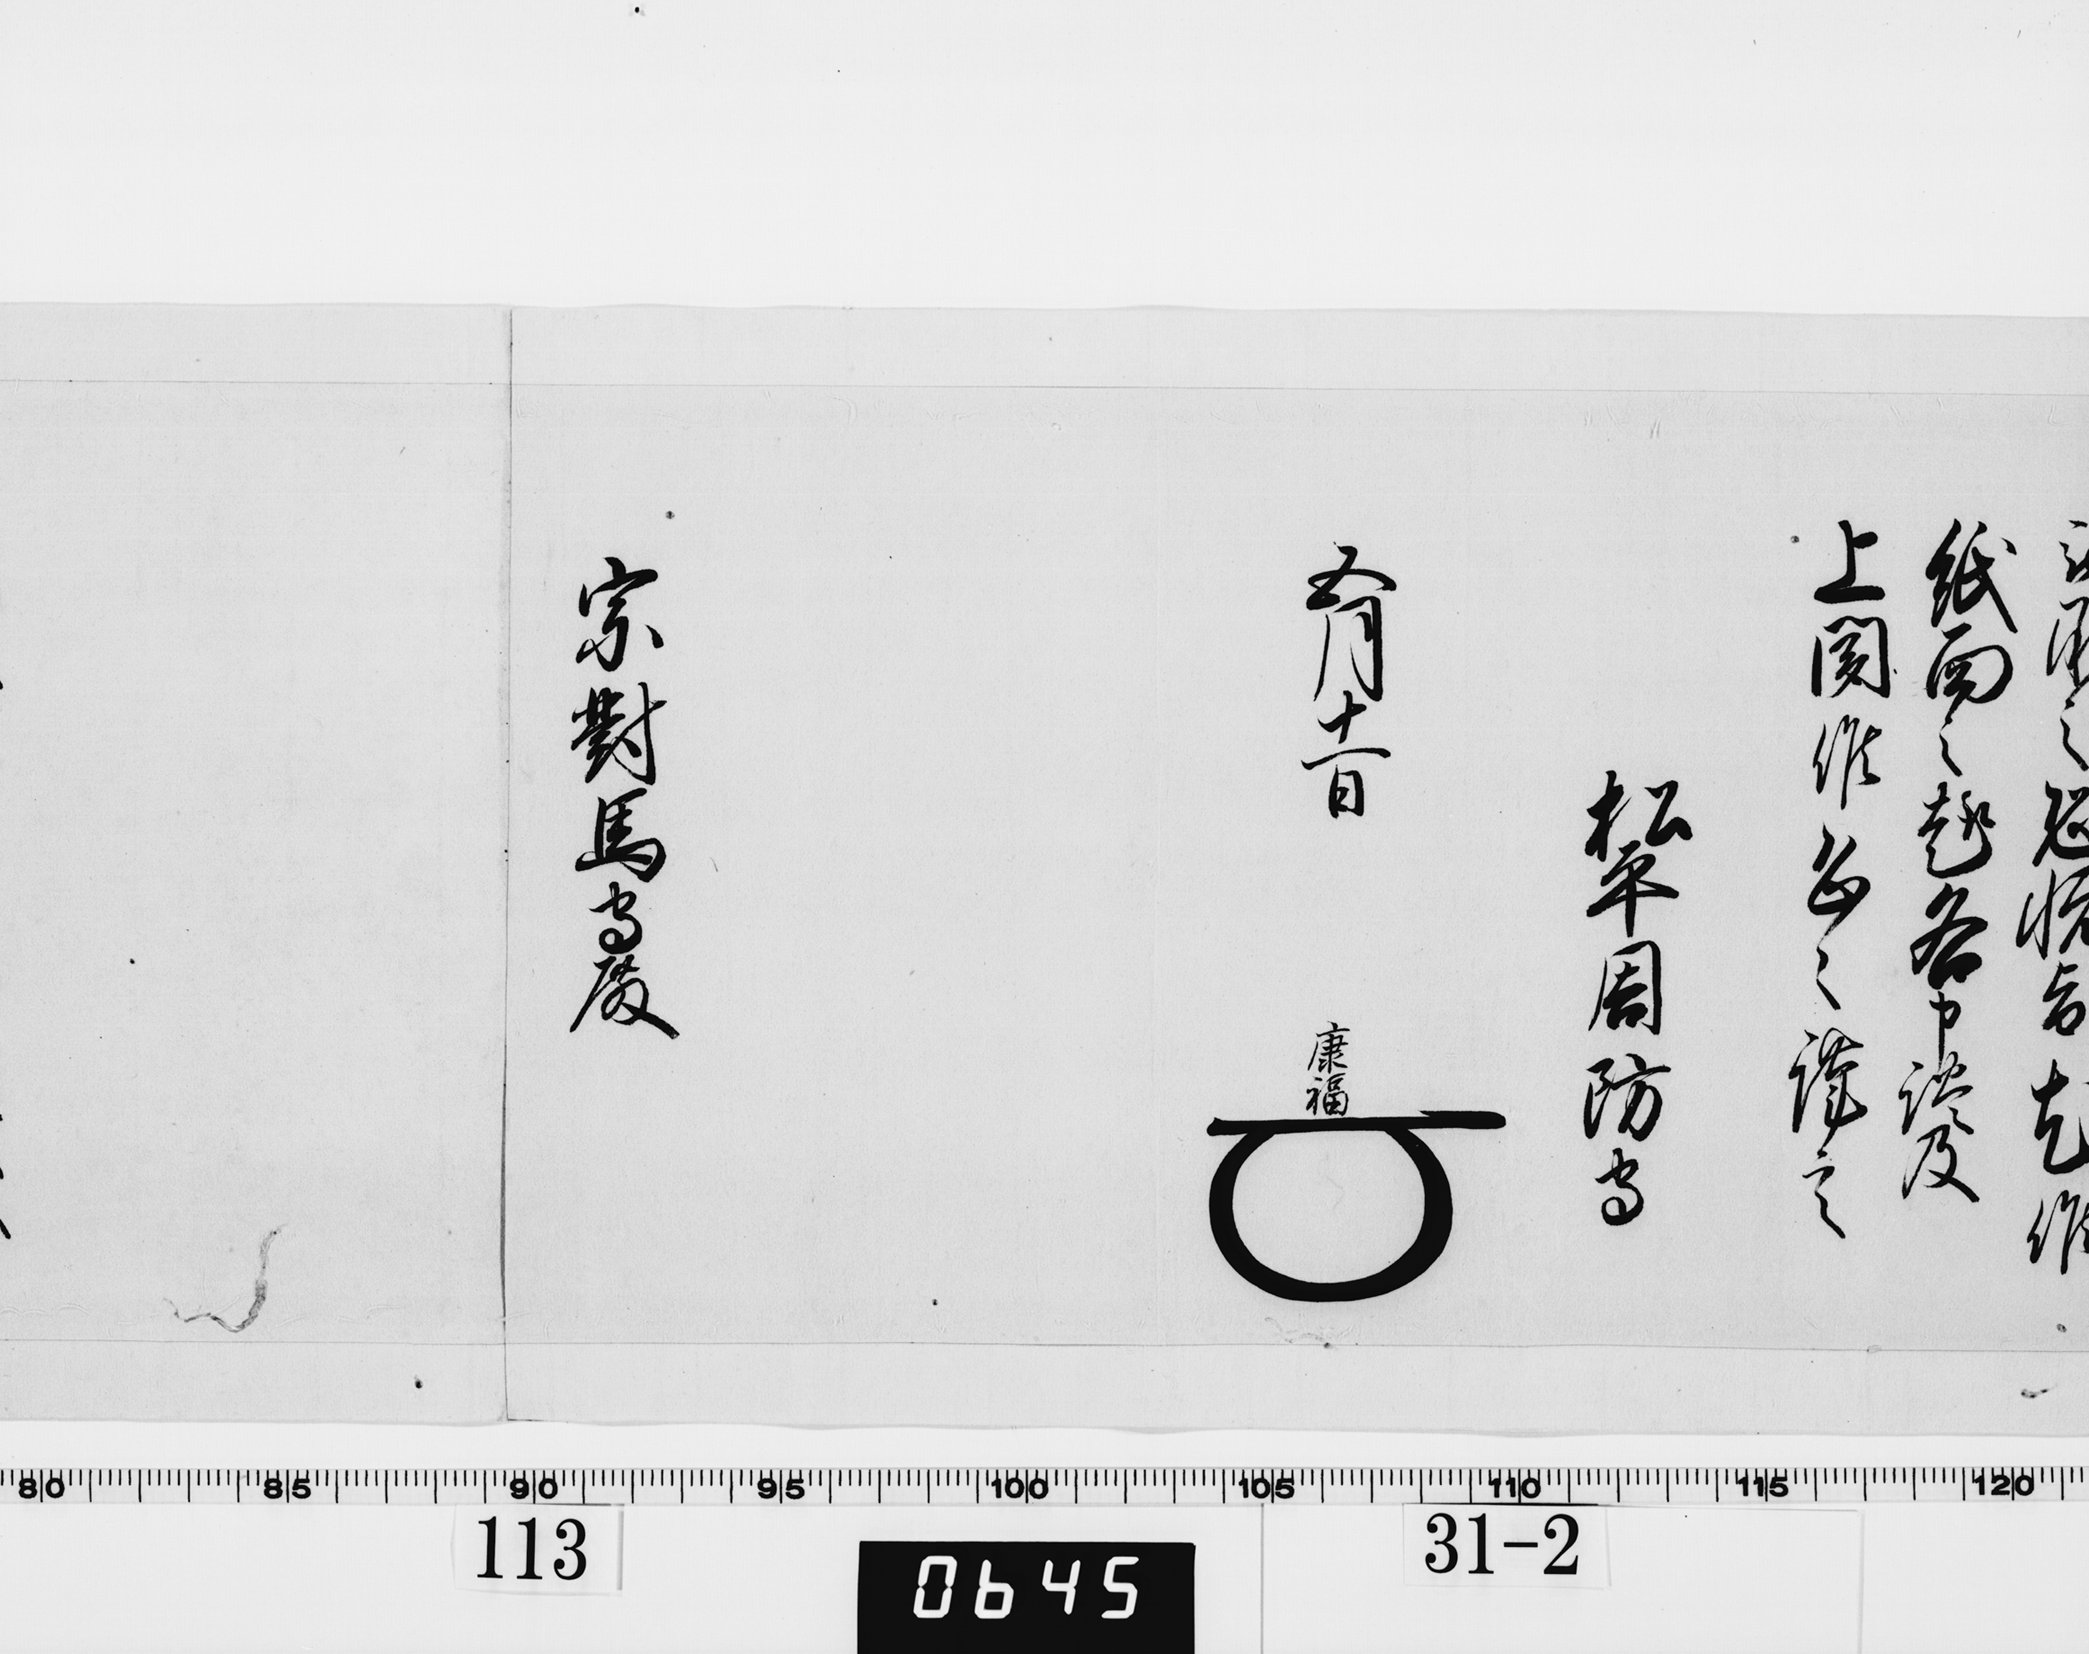 紙面之趣各申談及
上聞候恐々謹言
松平周防守
五月十一日
康福
宗對馬守殿
80 85 90 95 100 105 110 115 120
113
0645
31-2